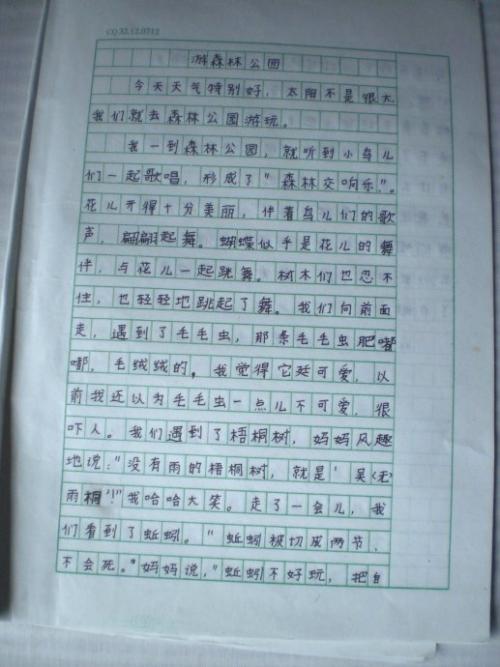 CQ 32.12.0712
游森林公园
今天天气特别好，太阳不是很大
我们就去森林公园游玩。
我一到森林公园，就听到小鸟儿
们一起歌唱，形成了“森林交响乐”。
花儿开得十分美丽，伴着鸟儿们的歌
声，翩翩起舞。蝴蝶似乎是花儿的舞
伴，与花儿一起跳舞。树木们也忍不
住，也轻轻地跳起了舞。我们向前面
走，遇到了毛毛虫，那条毛毛虫肥嘟
嘟，毛绒绒的，我觉得它挺可爱，以
前我还以为毛毛虫一点儿不可爱，很
吓人。我们遇到了梧桐树，妈妈风趣
地说：“没有雨的梧桐树，就是‘吴（无）
雨桐’！”我哈哈大笑。走了一会儿，我
们看到了蚯蚓。“蚯蚓被切成两节，
不会死。”妈妈说，“蚯蚓不好玩，把自